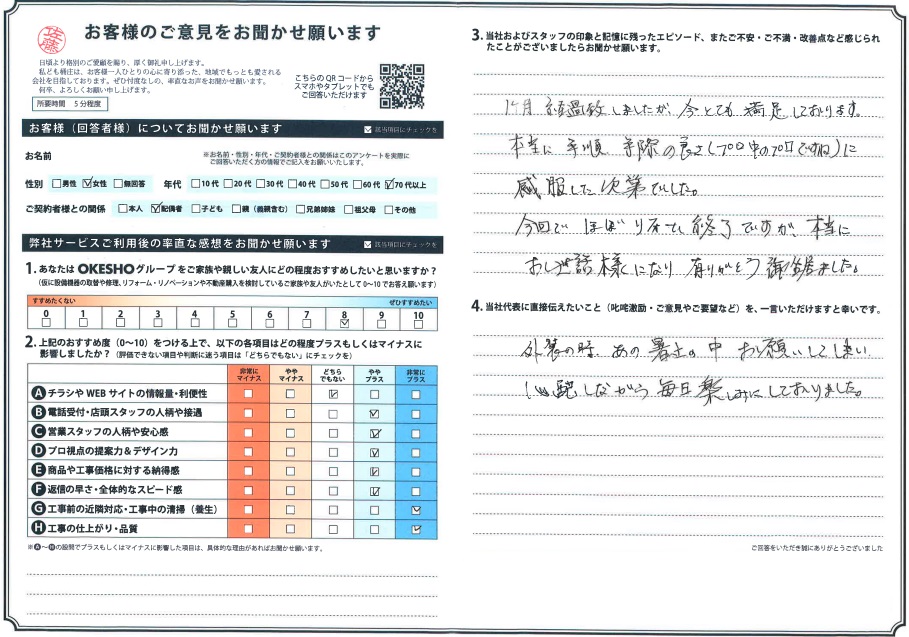 佐藤
お客様のご意見をお聞かせ願います
日頃より格別のご愛顧を賜り、厚く御礼申し上げます。
私ども桶庄は、お客様一人ひとりの心に寄り添った、地域でもっとも愛される
会社を目指しております。ぜひ忖度なしの、率直なお声をお聞かせ願います。
何卒、よろしくお願い申し上げます。
所要時間 5分程度
こちらのQRコードから
スマホやタブレットでも
ご回答いただけます
お客様（回答者様）についてお聞かせ願います
該当項目にチェックを
お名前
※お名前・性別・年代・ご契約者様との関係はこのアンケートを実際に
ご回答いただく方の情報でご記入をお願いいたします。
性別 男性 女性 無回答 年代 10代 20代 30代 40代 50代 60代 70代以上
ご契約者様との関係 本人 配偶者 子ども 親（義親含む） 兄弟姉妹 祖父母 その他
弊社サービスご利用後の率直な感想をお聞かせ願います
該当項目にチェックを
1. あなたはOKESHOグループをご家族や親しい友人にどの程度おすすめしたいと思いますか？
（仮に設備機器の取替や修理、リフォーム・リノベーションや不動産購入を検討しているご家族や友人がいたとして0〜10でお答え願います）
すすめたくない ぜひすすめたい
0 1 2 3 4 5 6 7 8 9 10
2. 上記のおすすめ度（0〜10）をつける上で、以下の各項目はどの程度プラスもしくはマイナスに
影響しましたか？（評価できない項目や判断に迷う項目は「どちらでもない」にチェックを）
非常にマイナス ややマイナス どちらでもない ややプラス 非常にプラス
A チラシやWEBサイトの情報量・利便性
B 電話受付・店頭スタッフの人柄や接遇
C 営業スタッフの人柄や安心感
D プロ視点の提案力＆デザイン力
E 商品や工事価格に対する納得感
F 返信の早さ・全体的なスピード感
G 工事前の近隣対応・工事中の清掃（養生）
H 工事の仕上がり・品質
※A〜Hの設問でプラスもしくはマイナスに影響した項目は、具体的な理由があればお聞かせ願います。
3. 当社およびスタッフの印象と記憶に残ったエピソード、またご不安・ご不満・改善点など感じられ
たことがございましたらお聞かせ願います。
経過致しましたが、今とても満足しております。
本当に手順 手際の良さ（プロ中のプロですね）に
感服した次第でした。
今回でほぼリフォーム終了ですが、本当に
お世話様になり有りがとう御座いました。
4. 当社代表に直接伝えたいこと（叱咤激励・ご意見やご要望など）を、一言いただけますと幸いです。
外装の時、あの暑さの中お願いしてしまい
心配しながら毎日楽しみにしておりました。
ご回答をいただき誠にありがとうございました